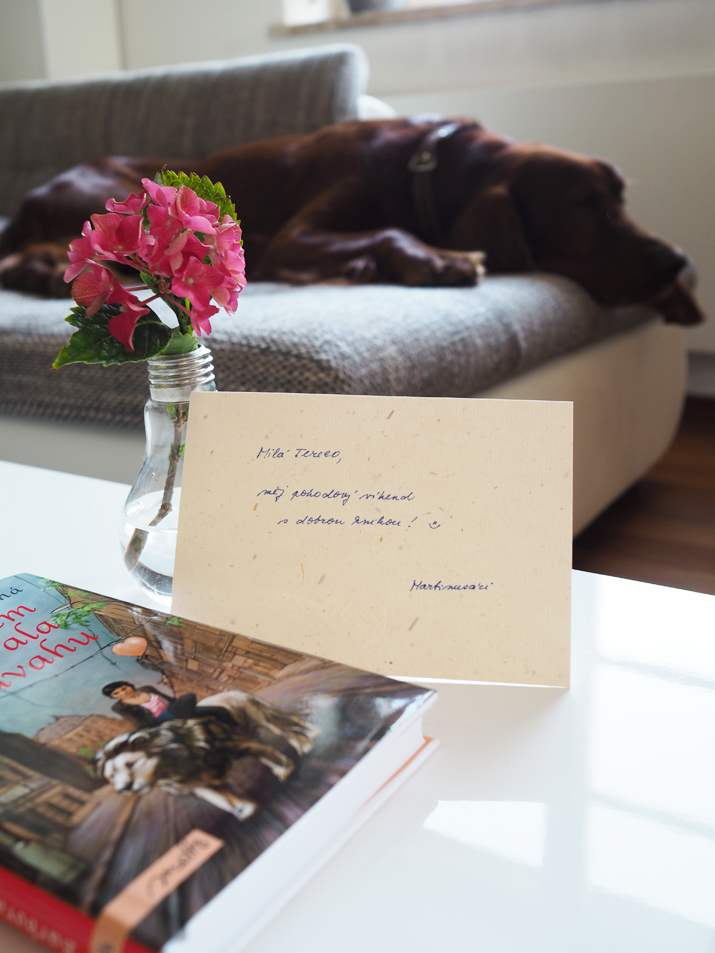 Milá Terezo,
měj pohodový víkend
s dobrou knihou! ☺
Martinusáci
ná
m
ala
vahu